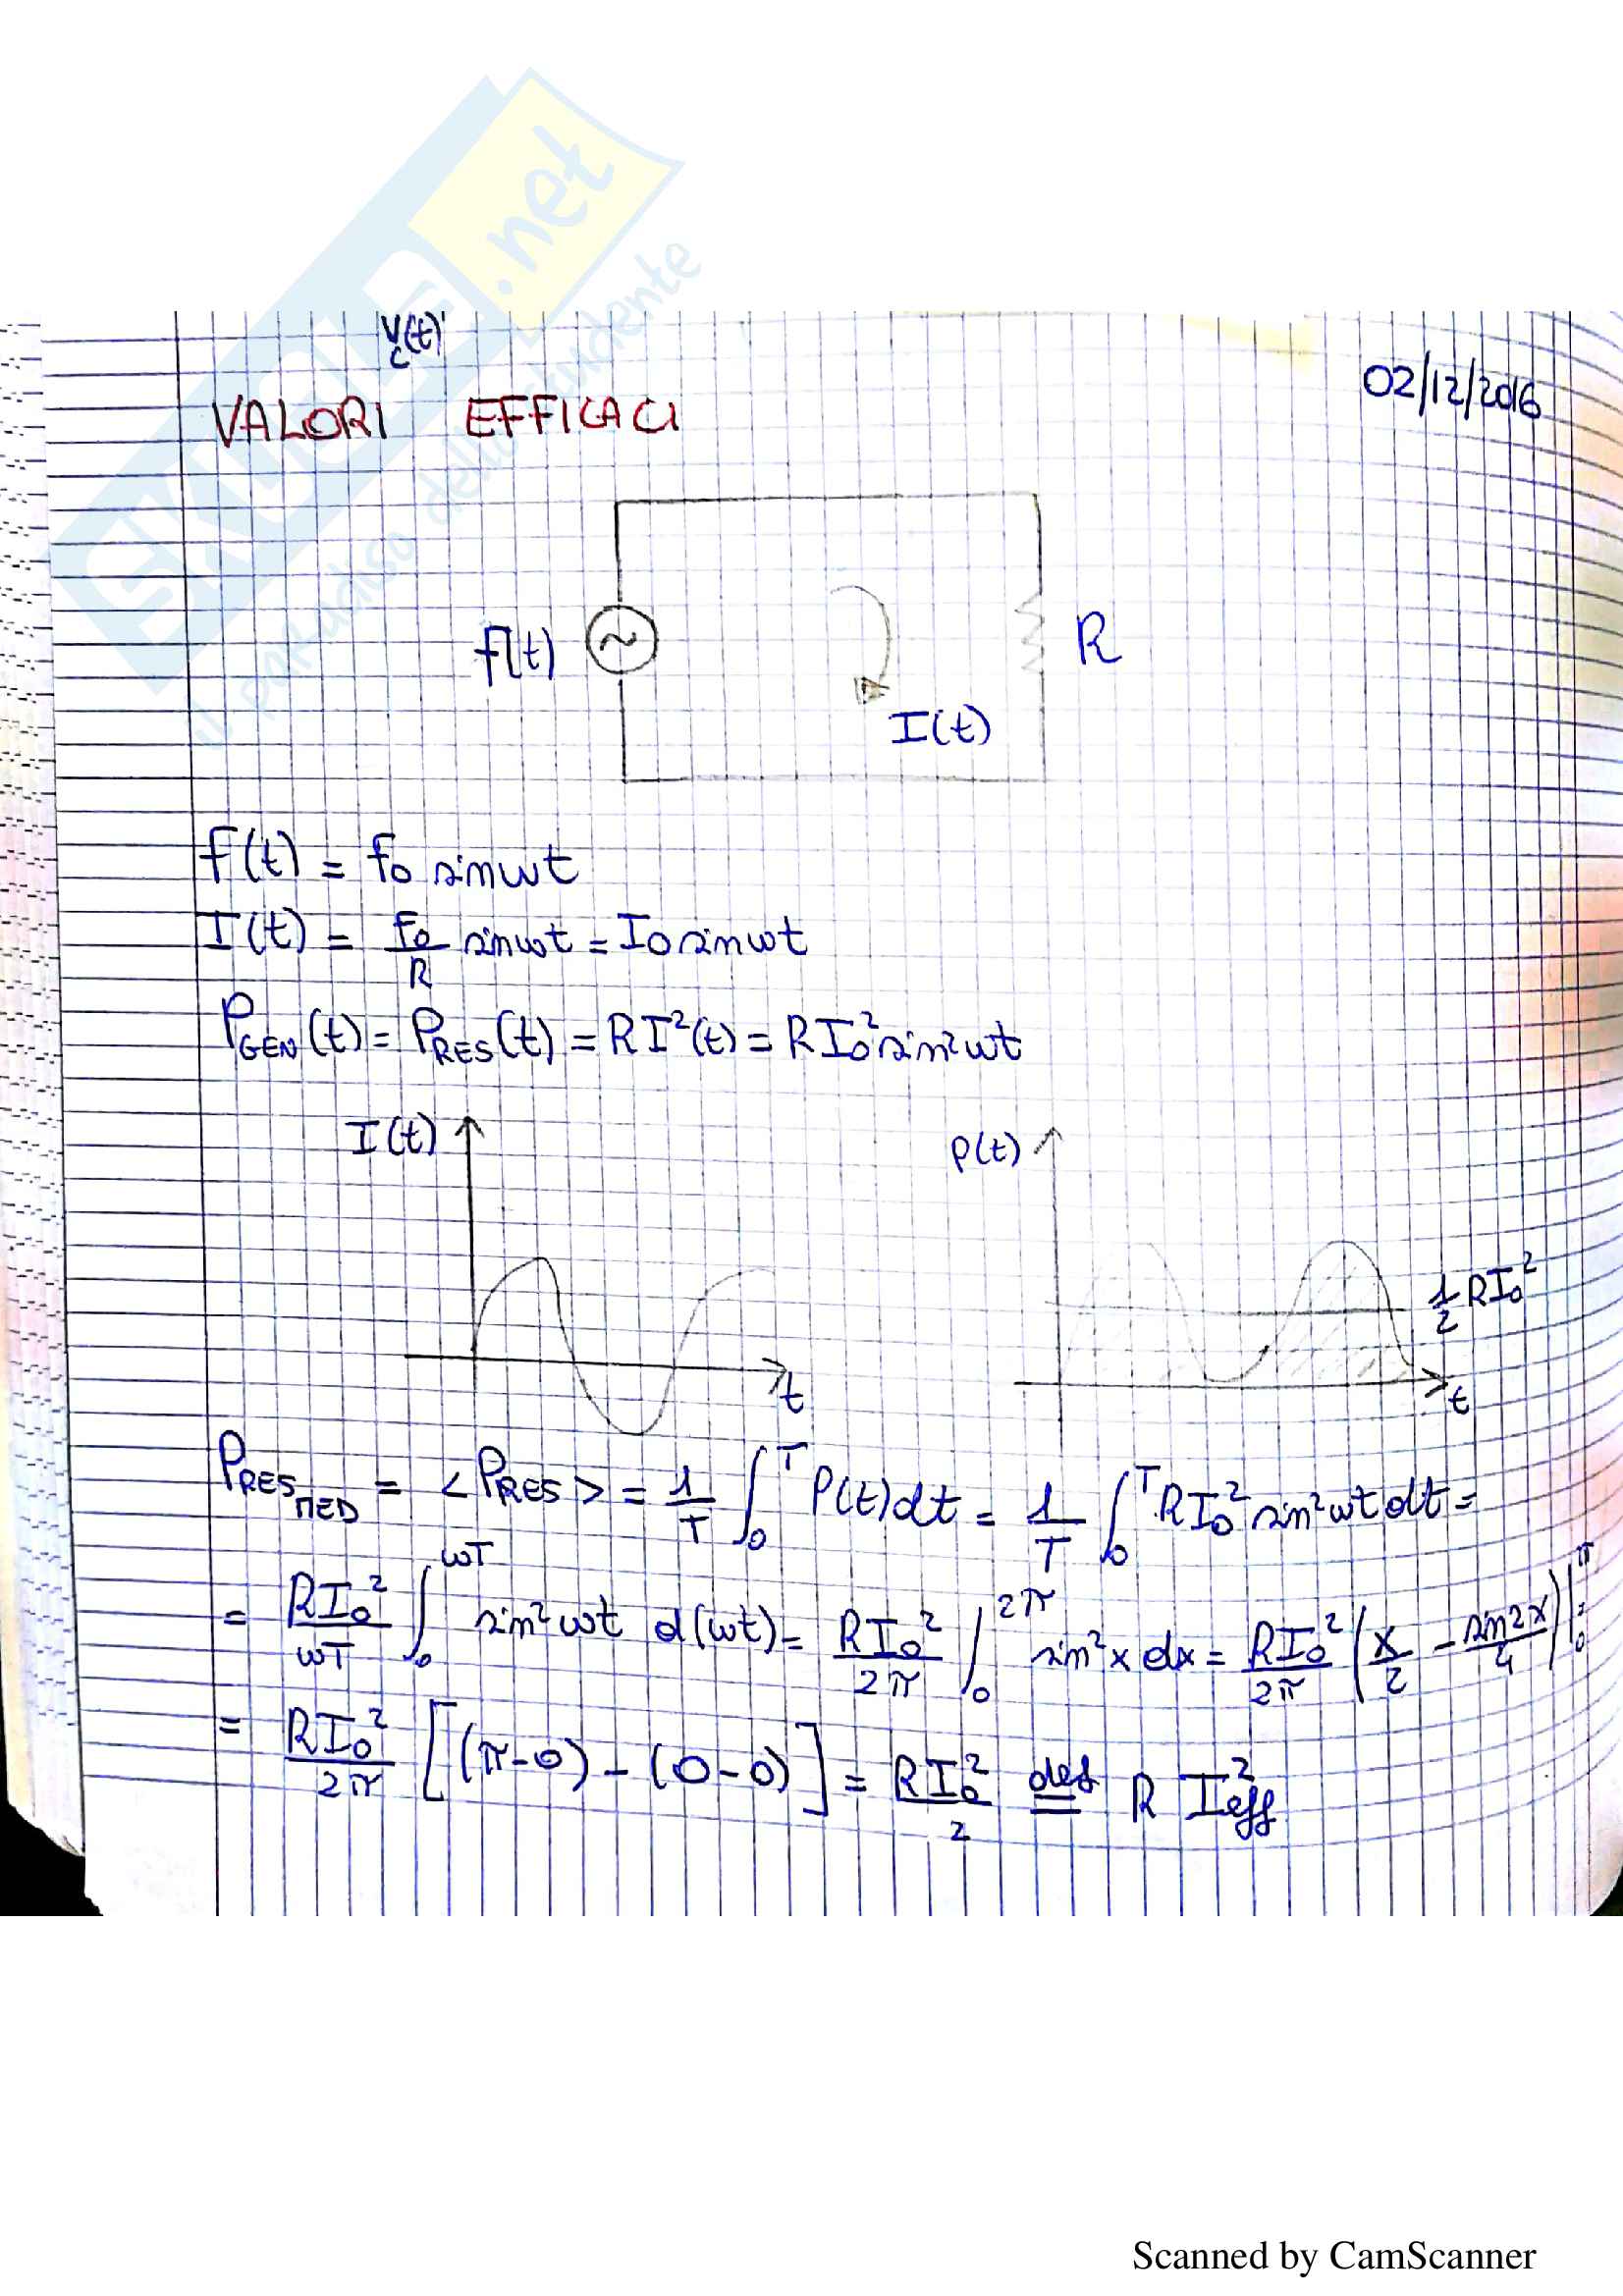 SKUOLA.net
il paradiso dello studente
V_C(t)
02/12/2016
VALORI EFFICACI
f(t)
R
I(t)
f(t) = f₀ sin ωt
I(t) = f₀/R sin ωt = I₀ sin ωt
P_GEN(t) = P_RES(t) = RI²(t) = RI₀² sin² ωt
I(t)
P(t)
1/2 RI₀²
t
t
P_RES_MED = <P_RES> = 1/T ∫₀^T P(t)dt = 1/T ∫₀^T RI₀² sin² ωt dt =
= RI₀²/ωT ∫₀^ωT sin² ωt d(ωt) = RI₀²/2π ∫₀^2π sin² x dx = RI₀²/2π (x/2 - sin2x/4)|
= RI₀²/2π [(π-0) - (0-0)] = RI₀²/2 def= R I²eff
Scanned by CamScanner